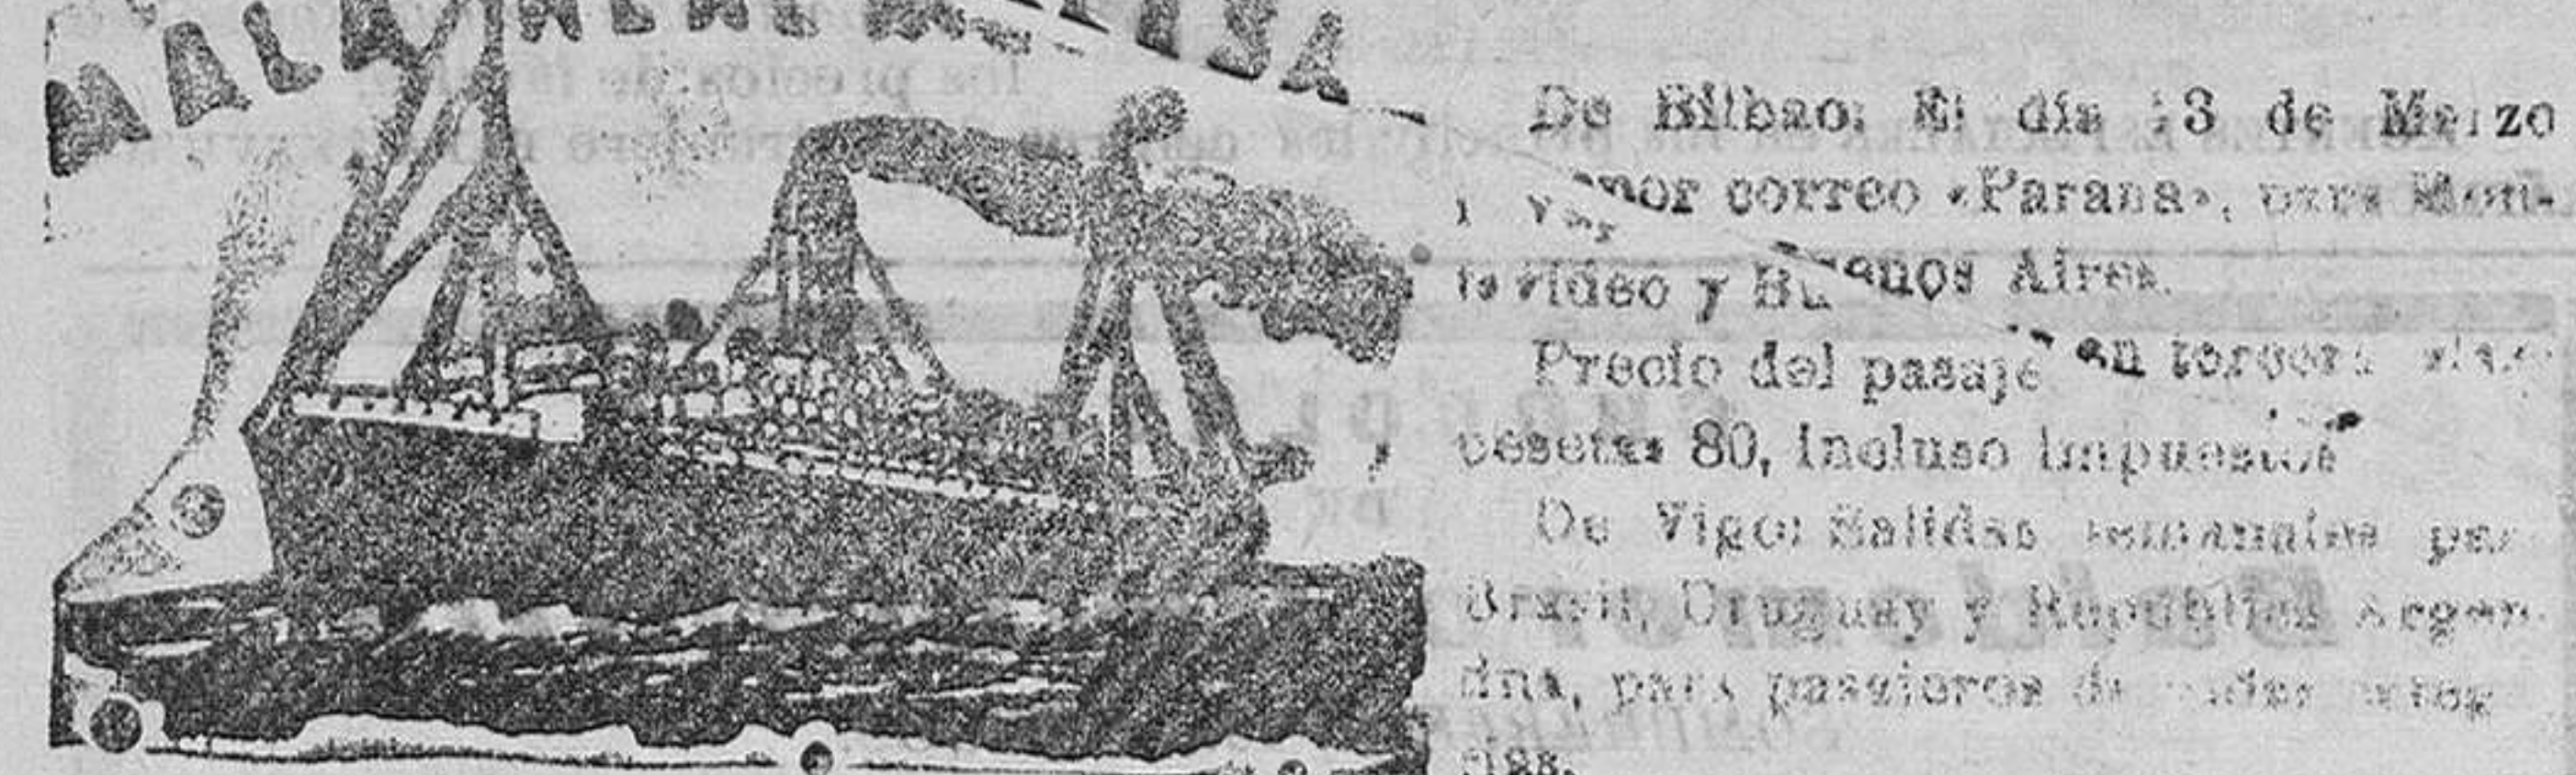 MALA REAL INGLESA
De Bilbao: El día 13 de Marzo
vapor correo «Parana», para Mon-
tevideo y Buenos Aires.
Precio del pasaje en tercera clase
pesetas 80, incluso impuestos
De Vigo: Salidas semanales para
Brasil, Uruguay y República Argen-
tina, para pasajeros de todas
rias.